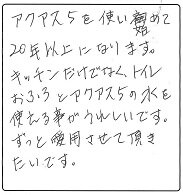 アクアス5を使い始めて
20年以上になります。
キッチンだけでなく、トイレ
おふろとアクアス5の水を
使える事がうれしいです。
ずっと愛用させて頂き
たいです。